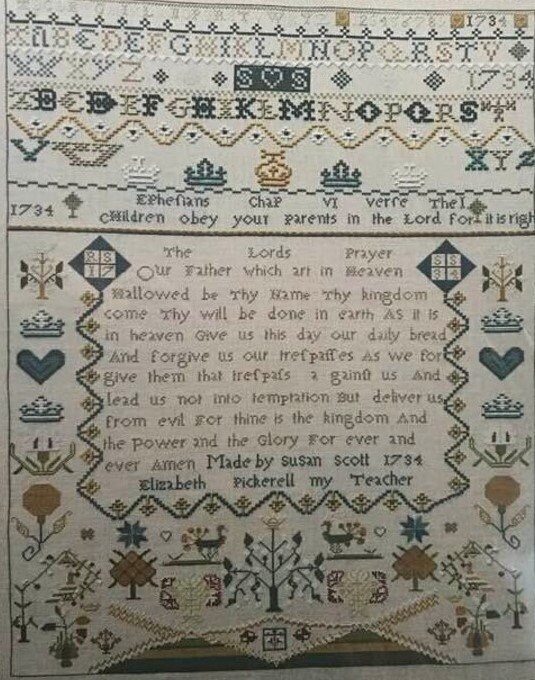 1734
A B C D E F G H I K L M N O P Q R S T V
W X Y Z S S 1734
A B C D E F G H I K L M N O P Q R S
X Y Z
1734 Ephesians Chap VI Verse The 1
Children obey your Parents in the Lord for it is righ
The Lords Prayer
RS 17 SS 34
Our Father which art in Heaven
Hallowed be Thy Name Thy kingdom
come Thy will be done in earth As it is
in heaven Give us this day our daily bread
And forgive us our trespasses As we for
give them that trespass a gainst us And
lead us not into temptation But deliver us
from evil For thine is the kingdom And
the Power and the Glory For ever and
ever Amen Made by Susan Scott 1734
Elizabeth Pickerell my Teacher